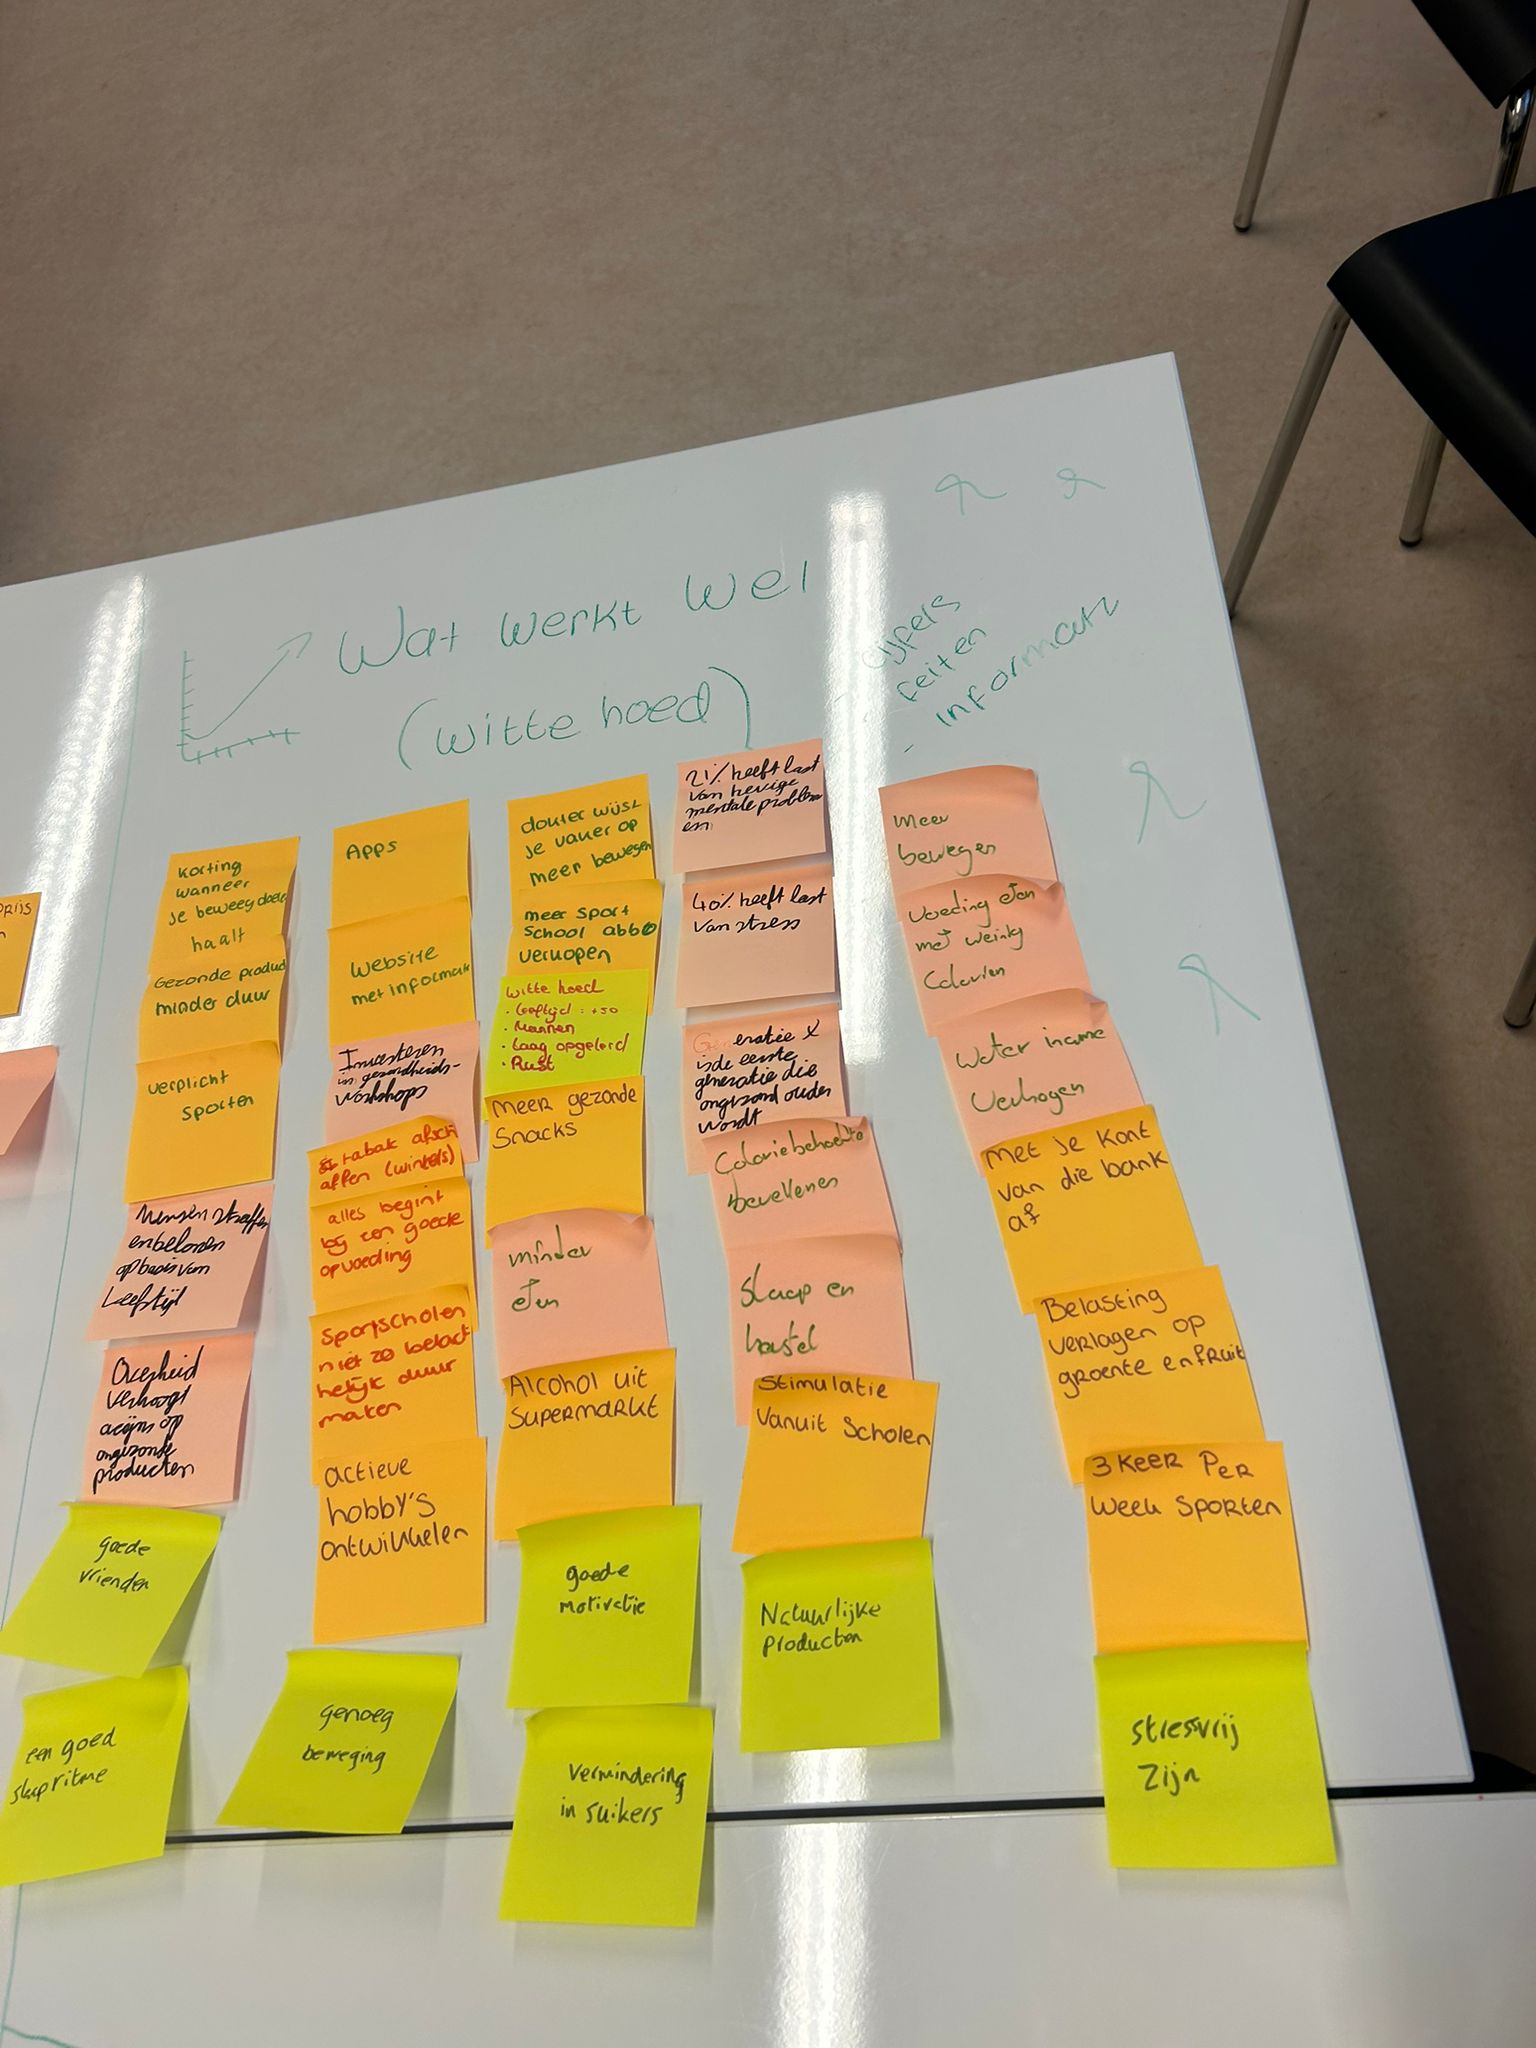 Wat werkt wel
(witte hoed)
cijfers
feiten
- informatie
Korting
wanneer
je beweegdoelen
haalt
Gezonde product
minder duur
verplicht
sporten
Mensen straffen
en belonen
op basis van
Leefstijl
Overheid
verhoogt
accijns op
ongezonde
producten
goede
vrienden
een goed
slaapritme
Apps
Website
met informatie
Investeren
in gezondheids-
workshops
tabak afsch
affen (winkels)
alles begint
bij een goede
opvoeding
Sportscholen
niet zo belach
helijk duur
maken
actieve
hobby's
ontwikkelen
genoeg
beweging
dokter wijst
je vaker op
meer bewegen
meer sport
school abbo
verkopen
witte hoed
· Leeftijd: +50
· Mannen
· Laag opgeleid
· Rust
Meer gezonde
snacks
minder
eten
Alcohol uit
supermarkt
goede
motivatie
Vermindering
in suikers
21% heeft last
van hevige
mentale problem
en
40% heeft last
van stress
Generatie X
is de eerste
generatie die
ongezond ouder
wordt
Caloriebehoefte
berekenen
Slaap en
herstel
Stimulatie
vanuit scholen
Natuurlijke
producten
meer
bewegen
Voeding eten
met weinig
Calorien
Water iname
verhogen
met je kont
van die bank
af
Belasting
verlagen op
groente en fruit
3 keer per
week sporten
stressvrij
zijn